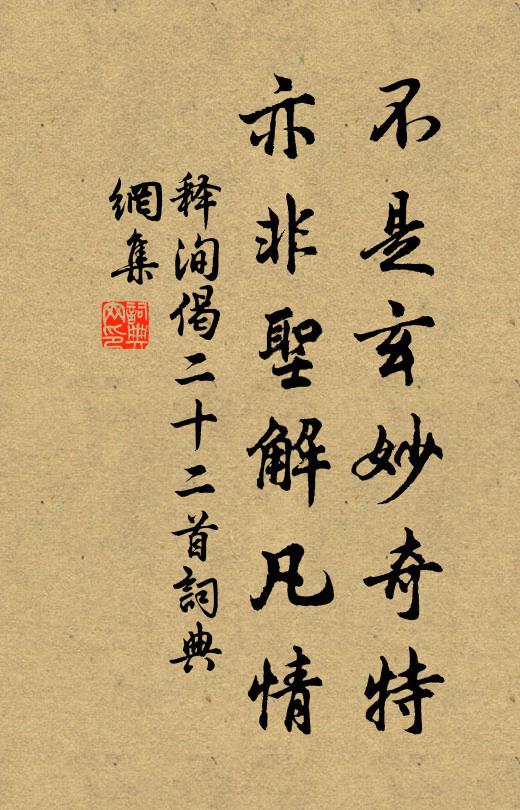 不是玄妙奇特
亦非聖解凡情
释洵偈二十二首詞典
網集
詞典
网印